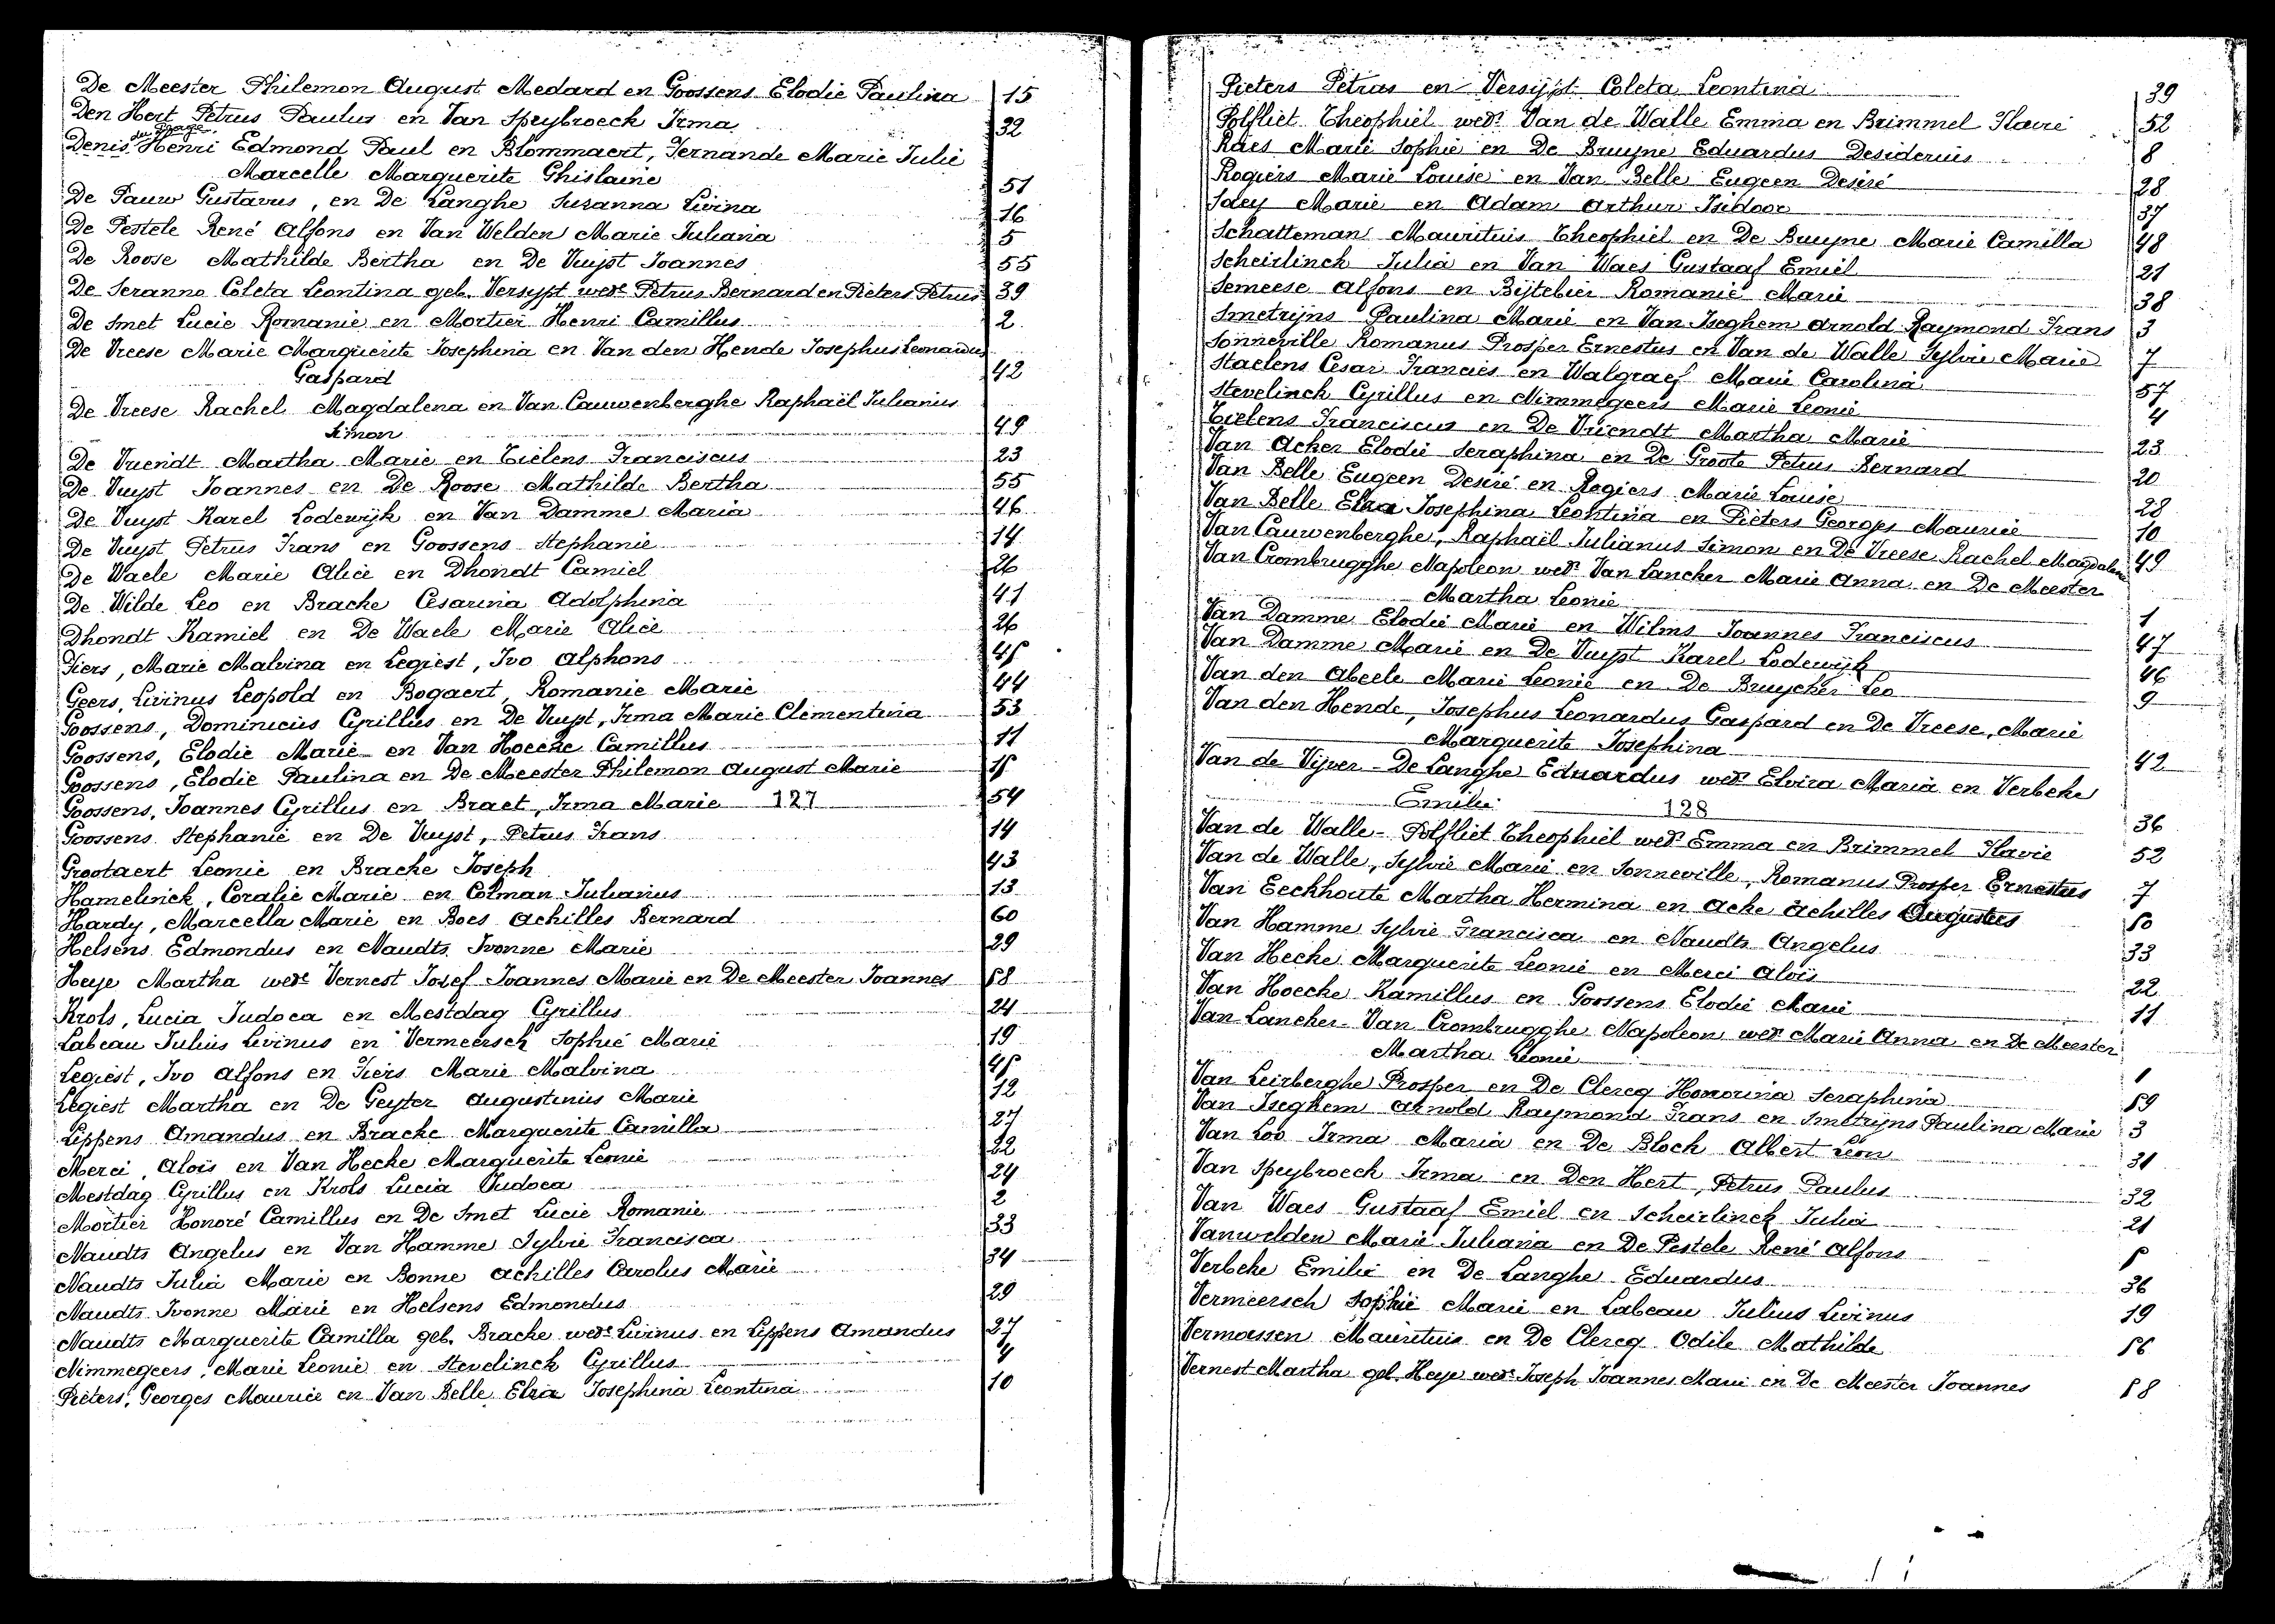 De Meester Philemon August Medard en Goossens Elodie Paulina 15
Den Hert Petrus Paulus en Van Speybroeck Irma 32
Denis, Henri Edmond Paul en Blommaert, Fernande Marie Julie
Marcelle Marguerite Ghislaine 51
De Pauw Gustavus, en De Langhe Suzanna Livina 16
De Pestele René Alfons en Van Welden Marie Juliana 5
De Roose Mathilde Bertha en De Vuyst Joannes 55
De Seranno Coleta Leontina geb. Versypt wede Petrus Bernard en Pieters Petrus 39
De Smet Lucie Romanie en Mortier Henri Camillus 2
De Vreese Marie Marguerite Josephina en Van den Hende Josephus Leonardus
Gaspard 42
De Vreese Rachel Magdalena en Van Cauwenberghe Raphaël Julianus
Simon 49
De Vriendt Martha Marie en Tielens Franciscus 23
De Vuyst Joannes en De Roose Mathilde Bertha 55
De Vuyst Karel Lodewijk en Van Damme Maria 46
De Vuyst Petrus Frans en Goossens Stephanie 14
De Waele Marie Alice en Dhondt Camiel 26
De Wilde Leo en Bracke Cesarina Adolphina 41
Dhondt Kamiel en De Waele Marie Alice 26
Fiers, Marie Malvina en Legiest, Ivo Alphons 45
Geers, Livinus Leopold en Bogaert, Romanie Marie 44
Goossens, Dominicus Cyrillus en De Vuyst, Irma Marie Clementina 53
Goossens, Elodie Marie en Van Hoecke Camillus 11
Goossens, Elodie Paulina en De Meester Philemon August Marie 15
Goossens, Joannes Cyrillus en Braet, Irma Marie 127 54
Goossens Stephanie en De Vuyst, Petrus Frans 14
Grootaert Leonie en Bracke Joseph 43
Hamelinck, Coralie Marie en Colman Julianus 13
Hardy, Marcella Marie en Boes Achilles Bernard 60
Helsens Edmondus en Naudts Ivonne Marie 29
Heye Martha wede Vernest Josef Joannes Marie en De Meester Joannes 58
Krols, Lucia Judoca en Mestdag Cyrillus 24
Labeau Julius Livinus en Vermeersch Sophie Marie 19
Legiest, Ivo Alfons en Fiers Marie Malvina 45
Legiest Martha en De Geyter Augustinus Marie 12
Lippens Amandus en Bracke Marguerite Camilla 27
Merci Aloïs en Van Hecke Marguerite Leonie 22
Mestdag Cyrillus en Krols Lucia Judoca 24
Mortier Honoré Camillus en De Smet Lucie Romanie 2
Naudts Angelus en Van Hamme Sylvie Francisca 33
Naudts Julia Marie en Bonne Achilles Carolus Marie 34
Naudts Ivonne Marie en Helsens Edmondus 29
Naudts Marguerite Camilla geb. Bracke wede Livinus en Lippens Amandus 27
Nimmegeers, Marie Leonie en Stevelinck Cyrillus 4
Pieters, Georges Maurice en Van Belle Elza Josephina Leontina 10
Pieters Petrus en Versijpt Coleta Leontina 39
Polfliet Theophiel wedr Van de Walle Emma en Brimmel Flavie 52
Raes Marie Sophie en De Bruyne Eduardus Desiderius 8
Rogiers Marie Louise en Van Belle Eugeen Desiré 28
Saey Marie en Adam Arthur Isidoor 37
Schatteman Mauritius Theophiel en De Bruyne Marie Camilla 48
Scheirlinck Julia en Van Waes Gustaaf Emiel 21
Semeese Alfons en Bijtebier Romanie Marie 38
Smetrijns Paulina Marie en Van Iseghem Arnold Raymond Frans 3
Sonneville Romanus Prosper Ernestus en Van de Walle Sylvie Marie 7
Staelens Cesar Francies en Walgraef Marie Carolina 57
Stevelinck Cyrillus en Nimmegeers Marie Leonie 4
Tielens Franciscus en De Vriendt Martha Marie 23
Van Acker Elodie Seraphina en De Groote Petrus Bernard 20
Van Belle Eugeen Desiré en Rogiers Marie Louise 28
Van Belle Elza Josephina Leontina en Pieters Georges Maurice 10
Van Cauwenberghe, Raphaël Julianus Simon en De Vreese Rachel Magdalena 49
Van Crombrugghe Napoleon wedr Van Lancker Marie Anna en De Meester
Martha Leonie 1
Van Damme Elodie Marie en Wilms Joannes Franciscus 47
Van Damme Marie en De Vuyst Karel Lodewijk 46
Van den Abeele Marie Leonie en De Bruycker Leo 9
Van den Hende, Josephus Leonardus Gaspard en De Vreese, Marie
Marguerite Josephina 42
Van de Vijver - De Langhe Eduardus wedr Elvira Maria en Verbeke
Emilie 128 36
Van de Walle - Polfliet Theophiel wedr Emma en Brimmel Flavie 52
Van de Walle, Sylvie Marie en Sonneville, Romanus Prosper Ernestus 7
Van Eeckhoute Martha Hermina en Acke Achilles Augustus 50
Van Hamme Sylvie Francisca en Naudts Angelus 33
Van Hecke Marguerite Leonie en Merci Aloïs 22
Van Hoecke Kamillus en Goossens Elodie Marie 11
Van Lancker - Van Crombrugghe Napoleon wedr Marie Anna en De Meester
Martha Leonie 1
Van Leirberghe Prosper en De Clercq Honorina Seraphina 59
Van Iseghem Arnold Raymond Frans en Smetrijns Paulina Marie 3
Van Loo Irma Maria en De Block Albert Léon 31
Van Speybroeck Irma en Den Hert, Petrus Paulus 32
Van Waes Gustaaf Emiel en Scheirlinck Julia 21
Vanwelden Marie Juliana en De Pestele René Alfons 5
Verbeke Emilie en De Langhe Eduardus 36
Vermeersch Sophie Marie en Labeau Julius Livinus 19
Vermassen Mauritius en De Clercq Odile Mathilde 56
Vernest Martha geb. Heye wede Joseph Joannes Marie en De Meester Joannes 58